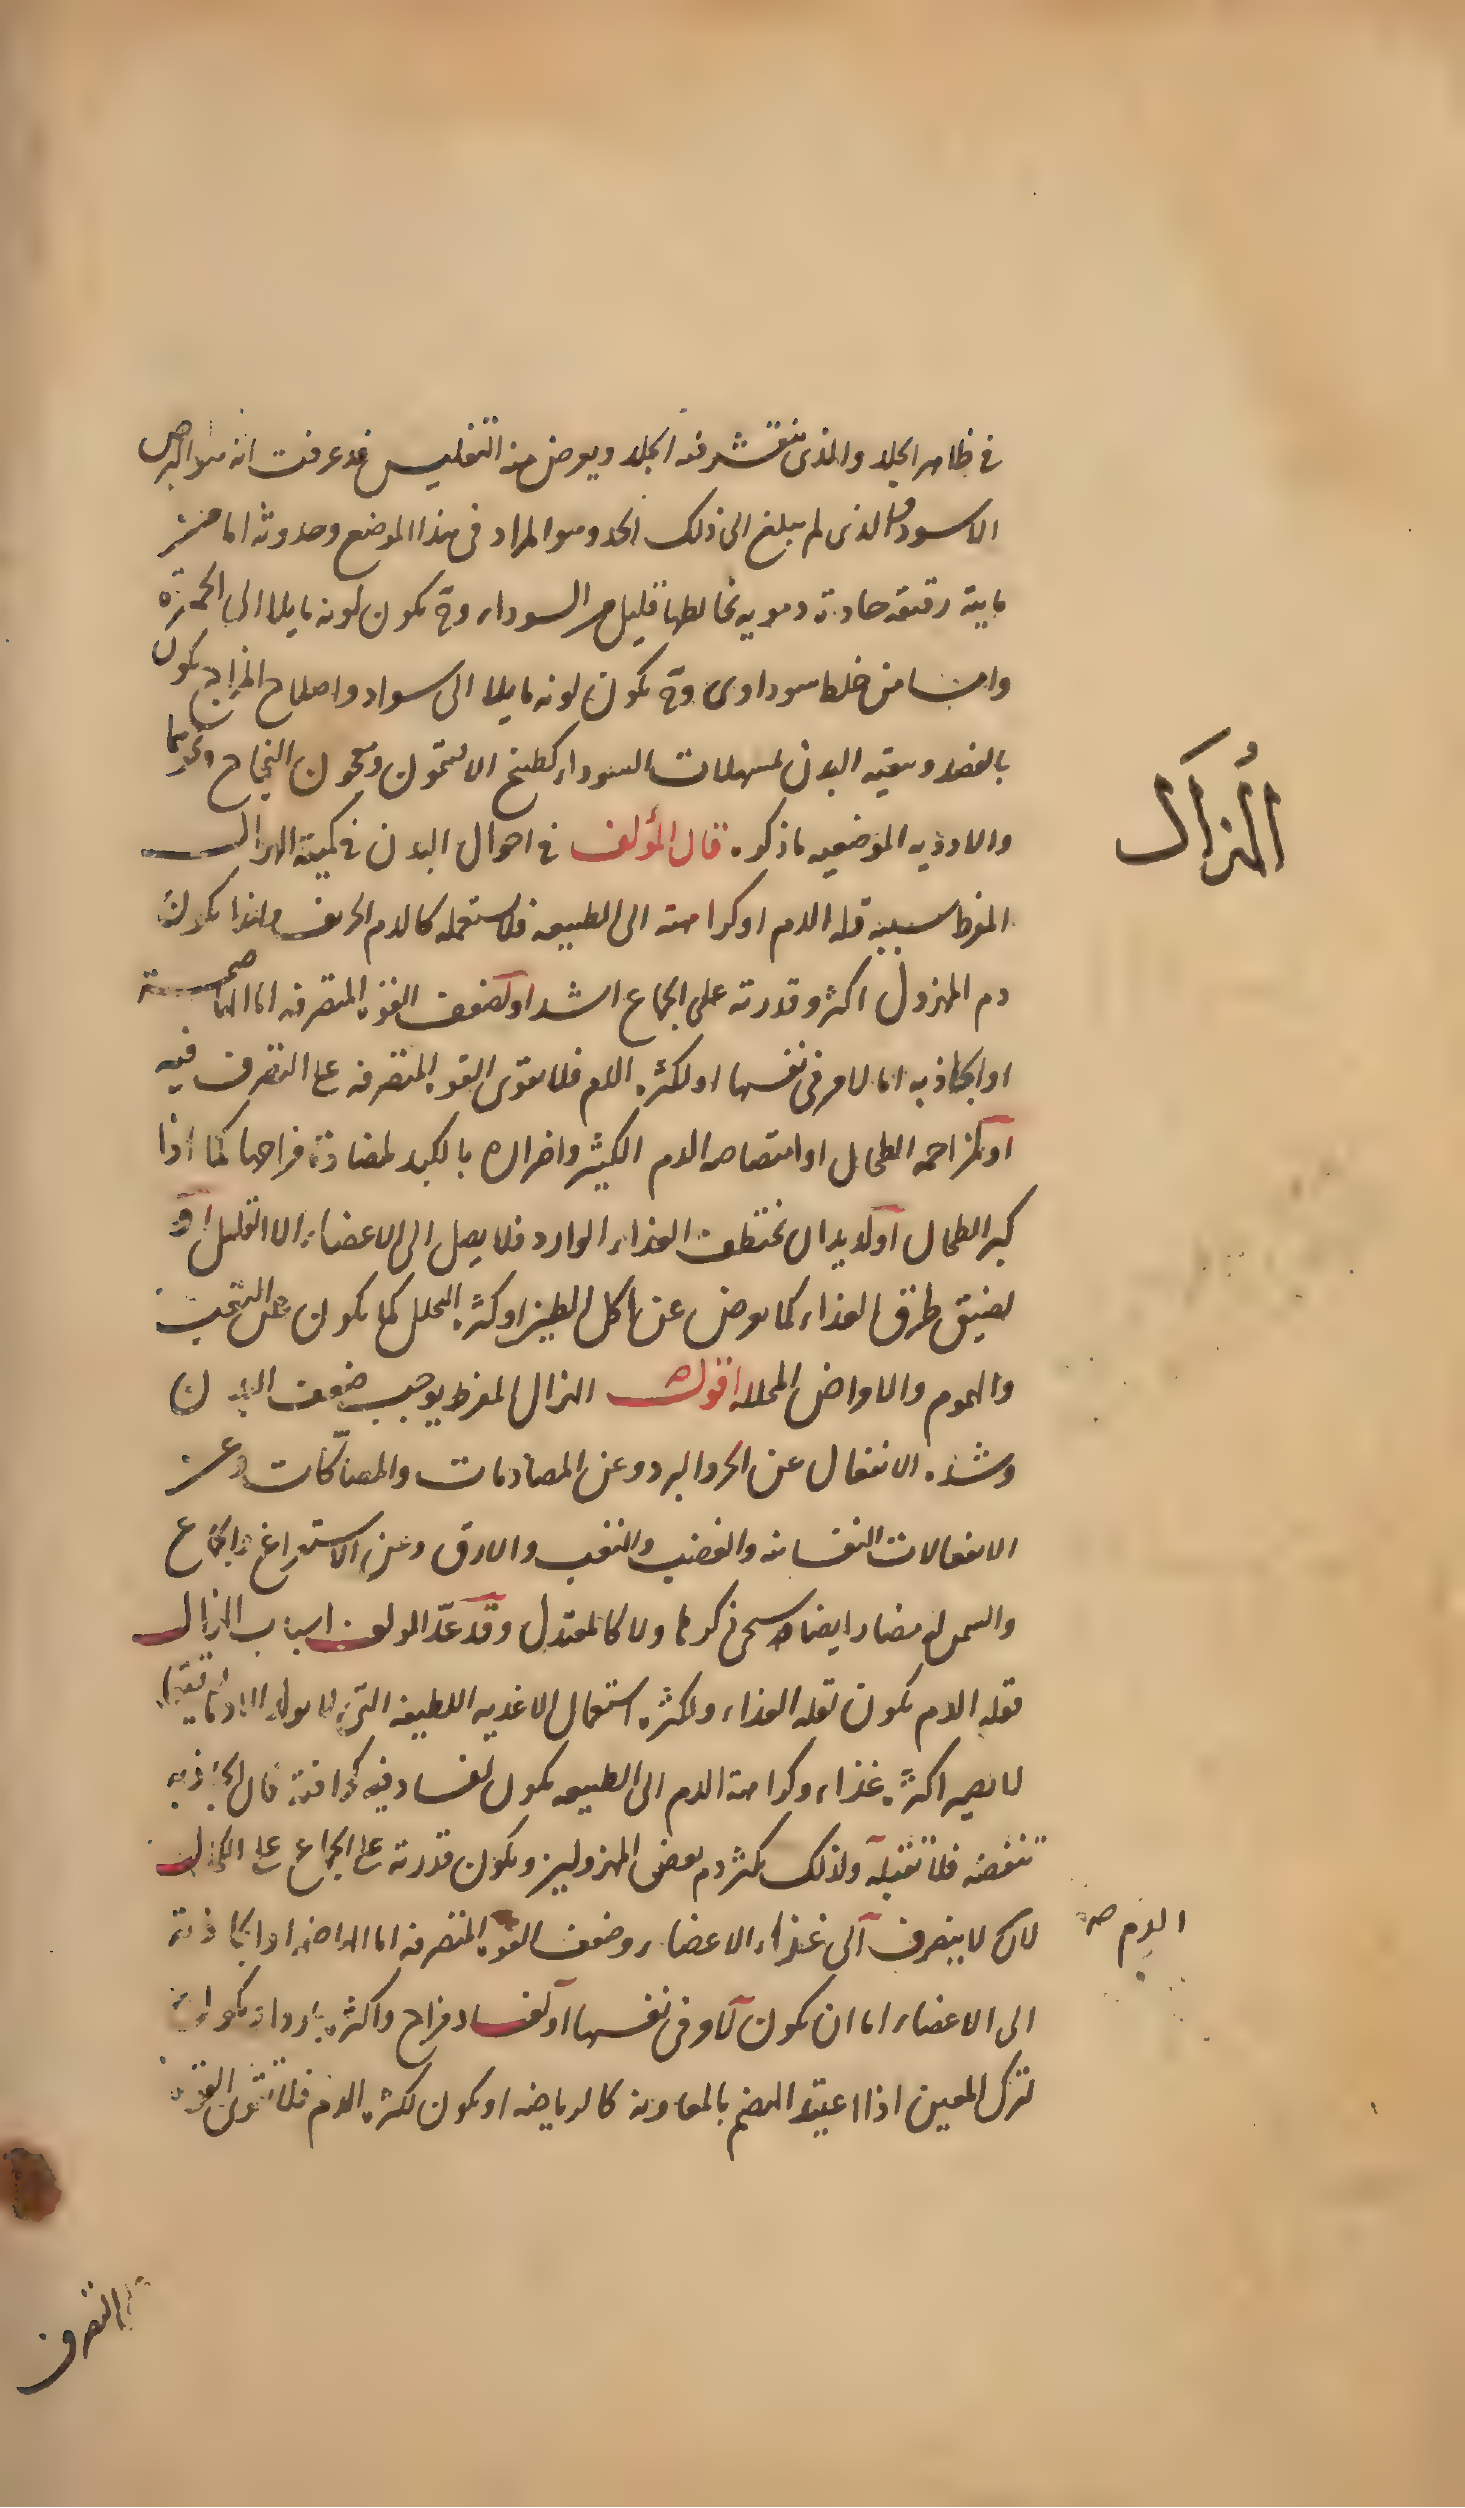 في ظاهر الجلد والذي يتقشر فيه الجلد ويعرض منه التفليس فقد عرفت انه هو البرص
الاسود والذي لم يبلغ الى ذلك الحد وهو المراد في هذا الموضع وحدوثه اما من
مايية رقيقة حادة دموية تخالطها قليل من السوداء وح يكون لونه مايلا الى الحمرة
واما من خلط سوداوى وح يكون لونه مايلا الى سواد واصلاح المزاج يكون
بالفصد وتنقية البدن بمسهلات السوداء كطبخ الافتيمون ومعجون النجاح ونحوهما
والادوية الموضعيه ما ذكره قال المؤلف في احوال البدن في كميته الهزال
المفرط سببه قلة الدم او كراهته الى الطبيعه فلا تستعمله كالدم الحريف ولهذا يكون
دم المهزول اكثر وقدرته على الجماع اشد او لضعف القوة المتصرفه اما الهاضمة
او الجاذبه اما لامر في نفسها او لكثرة الدم فلا تقوى القوة المتصرفه على التصرف فيه
او لمزاحمة الطحال او امتصاصه الدم الكثير واضراره بالكبد لمضادة مزاجها كما اذا
كبر الطحال او لديدان تختطف الغذاء الوارد فلا يصل الى الاعضاء الا القليل او
لضيق طرق الغذاء كما يعرض عن اكل الطين او كثرة التحلل كما يكون عن التعب
والهموم والامراض المحلله اقول الهزال المفرط يوجب ضعف البدن
وشدة الانفعال عن الحر والبرد وعن المصادمات والمصاكات وعن
الانفعالات النفسانية والغضب والتعب والارق وعن الاستفراغ والجماع
والسمن له مضار ايضا سيجئ ذكرها ولا كالمعتدل وقد عد المولف اسباب الهزال
فقلة الدم يكون لقلة الغذاء ولكثرة استعمال الاغذيه اللطيفة التي لا يولد الا دما رقيقا
لا يصير اكثره غذاء وكراهة الدم الى الطبيعه يكون لفساد فيه كحرافته فان الجاذبه
تبغضه فلا تقبله ولذلك يكثر دم بعض المهزولين ويكون قدرته على الجماع على الكمال
لان لا يتصرف الى غذاء الاعضاء وضعف القوة المتصرفه اما الهاضمه او الجاذبة
الى الاعضاء اما ان يكون لامر في نفسها او لفساد مزاج واكثره باردا ويكون
لترك المعين اذا اعتيد الهضم بالمعاونة كالرياضه او يكون لكثرة الدم فلا تقوى القوة
الهزال
الدم صح
التصرف